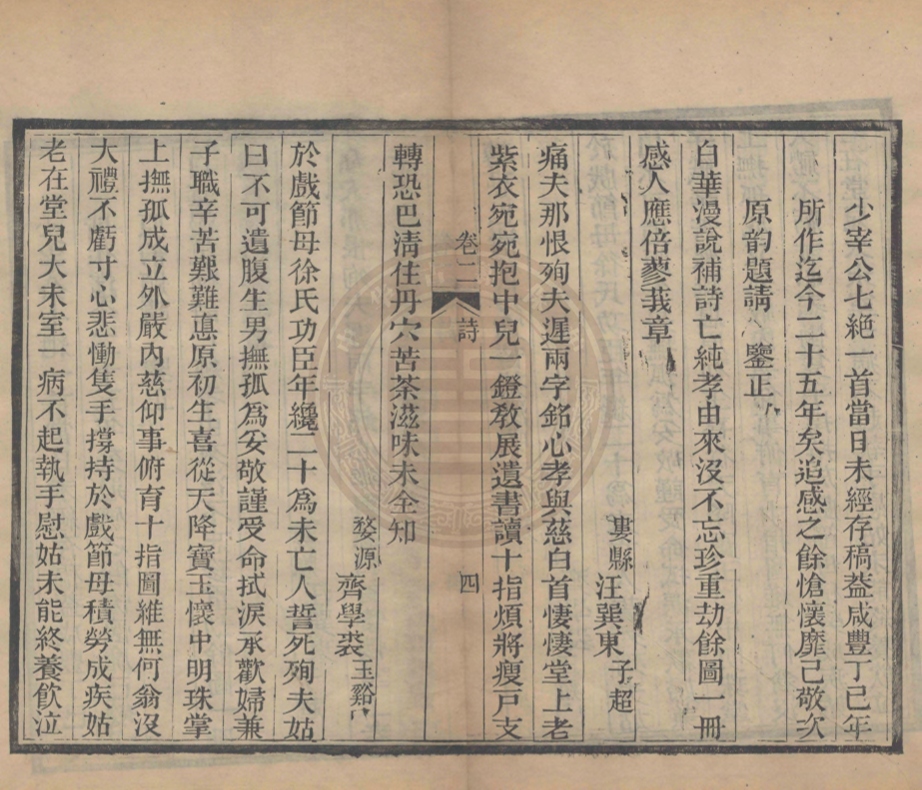 少宰公七絕一首當日未經存稿葢咸豐丁巳年
所作迄今二十五年矣追感之餘愴懷靡已敬次
原韵題請 鑒正
白華漫說補詩亡純孝由來沒不忘珍重劫餘圖一冊
感人應倍蓼莪章
婁縣汪巽東子超
痛夫那恨殉夫遲兩字銘心孝與慈白首悽悽堂上老
紫衣宛宛抱中兒一鐙敎展遺書讀十指煩將瘦戸支
卷二 詩 四
轉恐巴淸住丹穴苦茶滋味未全知
婺源齊學裘玉谿
於戲節母徐氏功臣年纔二十為未亡人誓死殉夫姑
曰不可遺腹生男撫孤為安敬謹受命拭淚承歡婦兼
子職辛苦艱難憙原初生喜從天降寶玉懷中明珠掌
上撫孤成立外嚴內慈仰事俯育十指圖維無何翁沒
大禮不虧寸心悲慟隻手撐持於戲節母積勞成疾姑
老在堂兒大未室一病不起執手慰姑未能終養飮泣